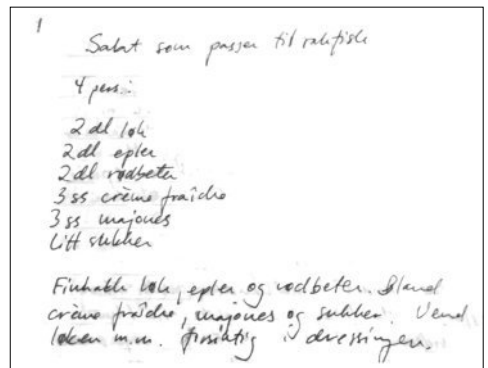 1
Salat som passer til rakfisk
4 pers.:
2 dl løk
2 dl epler
2 dl rødbeter
3 ss crème fraîche
3 ss majones
Litt sukker
Finhakk løk, epler og rødbeter. Bland
crème fraîche, majones og sukker. Vend
løken m.m. forsiktig i dressingen.